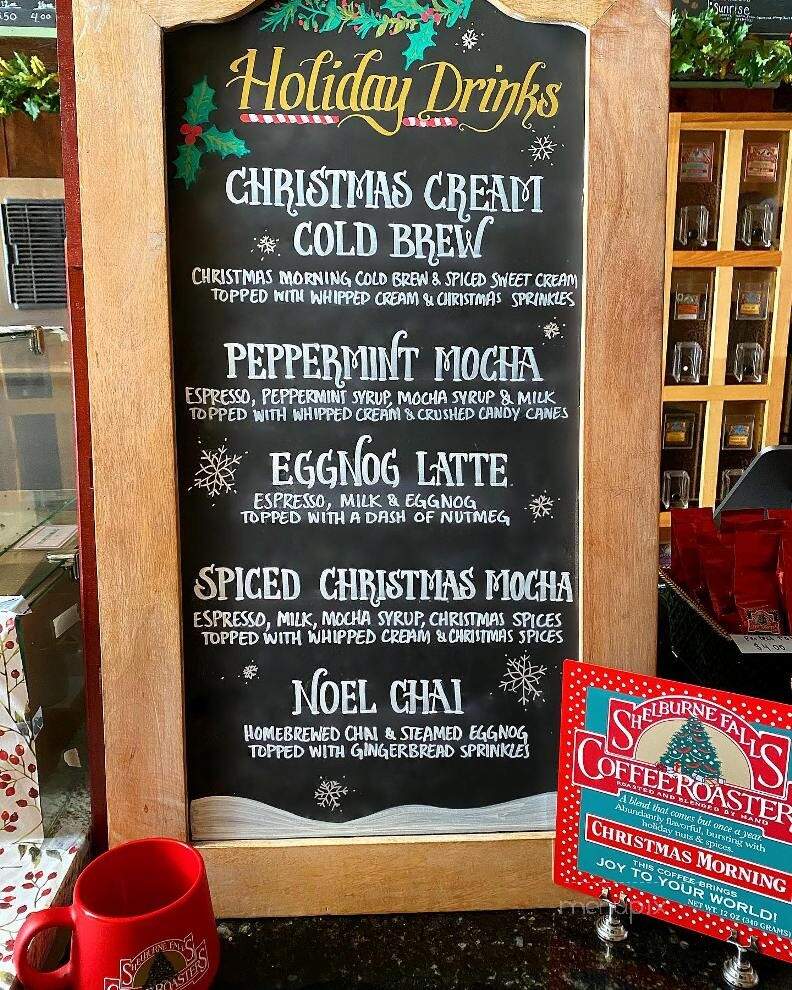 50 4.00
Sunrise
Holiday Drinks
CHRISTMAS CREAM
COLD BREW
CHRISTMAS MORNING COLD BREW & SPICED SWEET CREAM
TOPPED WITH WHIPPED CREAM & CHRISTMAS SPRINKLES
PEPPERMINT MOCHA
ESPRESSO, PEPPERMINT SYRUP, MOCHA SYRUP & MILK
TOPPED WITH WHIPPED CREAM & CRUSHED CANDY CANES
EGGNOG LATTE
ESPRESSO, MILK & EGGNOG
TOPPED WITH A DASH OF NUTMEG
SPICED CHRISTMAS MOCHA
ESPRESSO, MILK, MOCHA SYRUP, CHRISTMAS SPICES
TOPPED WITH WHIPPED CREAM & CHRISTMAS SPICES
NOEL CHAI
HOMEBREWED CHAI & STEAMED EGGNOG
TOPPED WITH GINGERBREAD SPRINKLES
$4.00
SHELBURNE FALLS
COFFEE ROASTERS
ROASTED AND BLENDED BY HAND
A blend that comes but once a year.
Abundantly flavorful, bursting with
holiday nuts & spices.
CHRISTMAS MORNING
THIS COFFEE BRINGS
JOY TO YOUR WORLD!
NET WT. 12 OZ (340 GRAMS)
menupix
SHELBURNE FALLS
ROASTERS